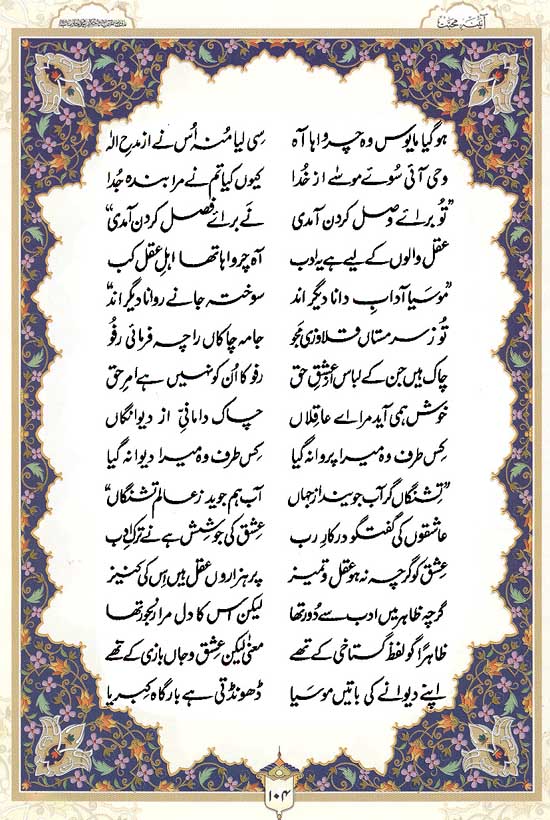 آئینہ محبت
ہوگیا مایوس وہ چرواہا آہ سی لیا منہ اُس نے از مدحِ الٰہ
وحی آئی سُوئے موسےٰ از خُدا کیوں کیا تم نے مرا بندہ جُدا
”تُو برائے وصل کردن آمدی نَے برائے فصل کردن آمدی“
عقل والوں کے لیے ہے یہ ادب آہ چرواہا تھا اہلِ عقل کب
”موسیا آدابِ دانا دیگر اند سوختہ جانے روانا دیگر اند“
تُو ز سرمستاں قلاوزی مجو جامہ چاکاں را چہ فرمائی رفُو
چاک ہیں جن کے لباس از عشقِ حق رفو کا اُن کو نہیں ہے امرِ حق
خوش ہمی آید مرا اے عاقلاں چاک دامانیِ از دیوانگاں
کِس طرف وہ میرا پروانہ گیا کِس طرف وہ میرا دیوانہ گیا
”تِشنگاں گر آب جویند از جہاں آب ہم جوید ز عالم تشنگاں“
عاشقوں کی گفتگو در کارِ رب عشق کی جوشش ہے نے ترکِ ادب
عشق کو گرچہ نہ ہو عقل و تمیز پر ہزاروں عقل ہیں اِس کی کنیز
گرچہ ظاہر میں ادب سے دُور تھا لیکن اس کا دل مرا رنجور تھا
ظاہراً گو لفظ گستاخی کے تھے معنیً لیکن عشق و جاں بازی کے تھے
اپنے دیوانے کی باتیں موسیا ڈھونڈتی ہے بارگاہِ کبریا
۱۰۴